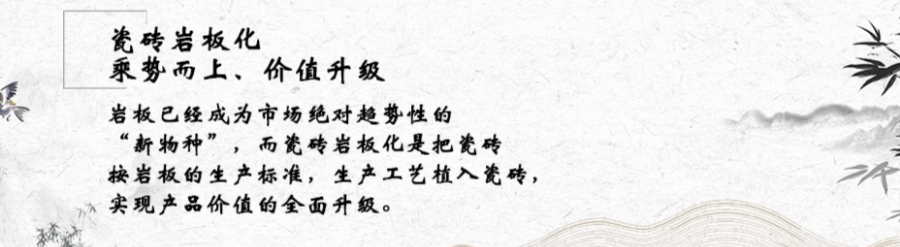 瓷砖岩板化
乘势而上、价值升级
岩板已经成为市场绝对趋势性的
“新物种”，而瓷砖岩板化是把瓷砖
按岩板的生产标准，生产工艺植入瓷砖，
实现产品价值的全面升级。